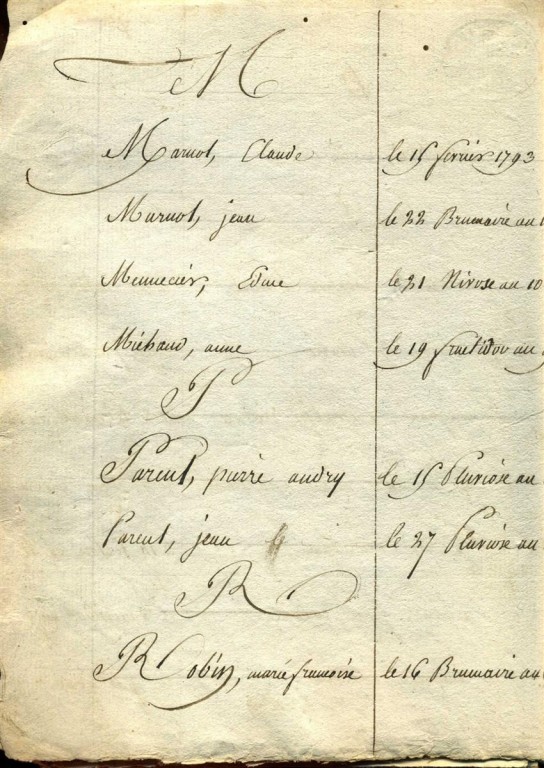 M
Marnot, Claude le 15 fevrier 1793
Marnot, jean le 22 Brumaire an
Mennecier, Edme le 21 Nivose an 10
Michaud, anne le 19 fructidor an
P
Parent, pierre andry le 15 Pluviose an
Parent, jean le 27 Pluviose an
R
Robin, marie francoise le 16 Brumaire an